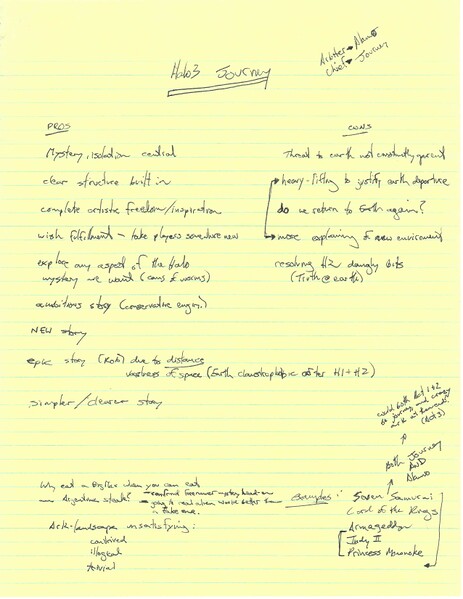 Arbiter → Nemo
Chief → Journey
Halo3 Journey
PROS
CONS
Mystery, isolation central
clear structure built in
complete artistic freedom/inspiration
wish fulfillment – take players somewhere new
explore any aspect of the Halo
mystery we want (cans of worms)
ambitious story (conservative engin.)
NEW story
epic story [ROM] due to distance
vastness of space (Earth claustrophobic after H1+H2)
simpler/clearer story
Threat to earth not constantly present
heavy-lifting to justify earth departure
do we return to Earth again?
more explaining of new environment
resolving H2 dangly bits
(Truth @ earth)
could both Act 1+2
be journey and crazy
Ark as
(Act 3)
Both Journey
AND
Nemo
Why eat a Big Mac when you can eat
an Argentine steak?
going to real when works better than
in fake one.
Ark-landscape unsatisfying:
contrived
illogical
trivial
examples:
Seven Samurai
Lord of the Rings
Armageddon
Judy II
Princess Mononoke